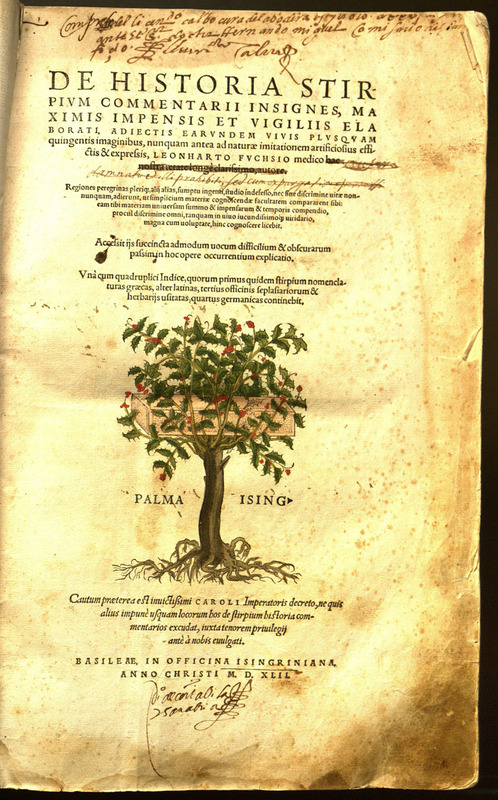 DE HISTORIA STIR-
PIVM COMMENTARII INSIGNES, MA
XIMIS IMPENSIS ET VIGILIIS ELA
BORATI, ADIECTIS EARVNDEM VIVIS PLVSQVAM
quingentis imaginibus, nunquam antea ad naturæ imitationem artificiosius effi-
ctis & expressis, LEONHARTO FVCHSIO medico hac
nostra ætate longè clarissimo, autore.
Regiones peregrinas pleriq;, alij alias, sumptu ingenti, studio indefesso, nec sine discrimine uitæ non-
nunquam, adierunt, ut simplicium materiæ cognoscendæ facultatem compararent sibi:
eam tibi materiam uniuersam summo & impensarum & temporis compendio,
procul discrimine omni, tanquam in uiuo iucundissimoq; uiridario,
magna cum uoluptate, hinc cognoscere licebit.
Accessit ijs succincta admodum uocum difficilium & obscurarum
passim in hoc opere occurrentium explicatio.
Vnà cum quadruplici Indice, quorum primus quidem stirpium nomencla-
turas græcas, alter latinas, tertius officinis seplasiariorum &
herbarijs usitatas, quartus germanicas continebit.
PALMA ISING
Cautum præterea est inuictissimi CAROLI Imperatoris decreto, ne quis
alius impunè usquam locorum hos de stirpium historia com-
mentarios excudat, iuxta tenorem priuilegij
antè à nobis euulgati.
BASILEAE, IN OFFICINA ISINGRINIANA,
ANNO CHRISTI M. D. XLII.